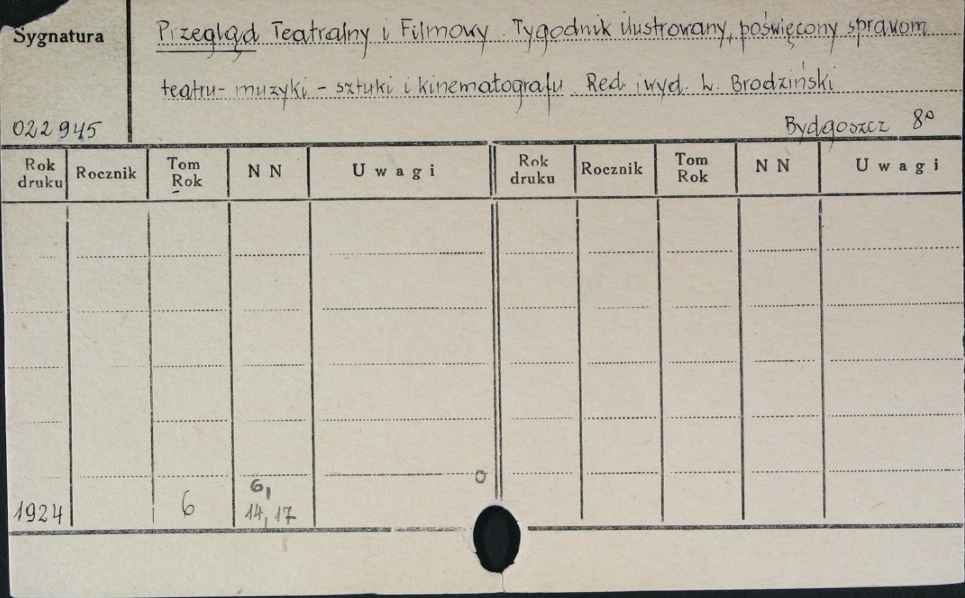 Sygnatura
Przegląd Teatralny i Filmowy. Tygodnik ilustrowany, poświęcony sprawom
teatru - muzyki - sztuki i kinematografu Red. i wyd. L. Brodziński
022945
Bydgoszcz 8°
Rok druku Rocznik Tom Rok NN Uwagi Rok druku Rocznik Tom Rok NN Uwagi
6,
1924 6 14, 17